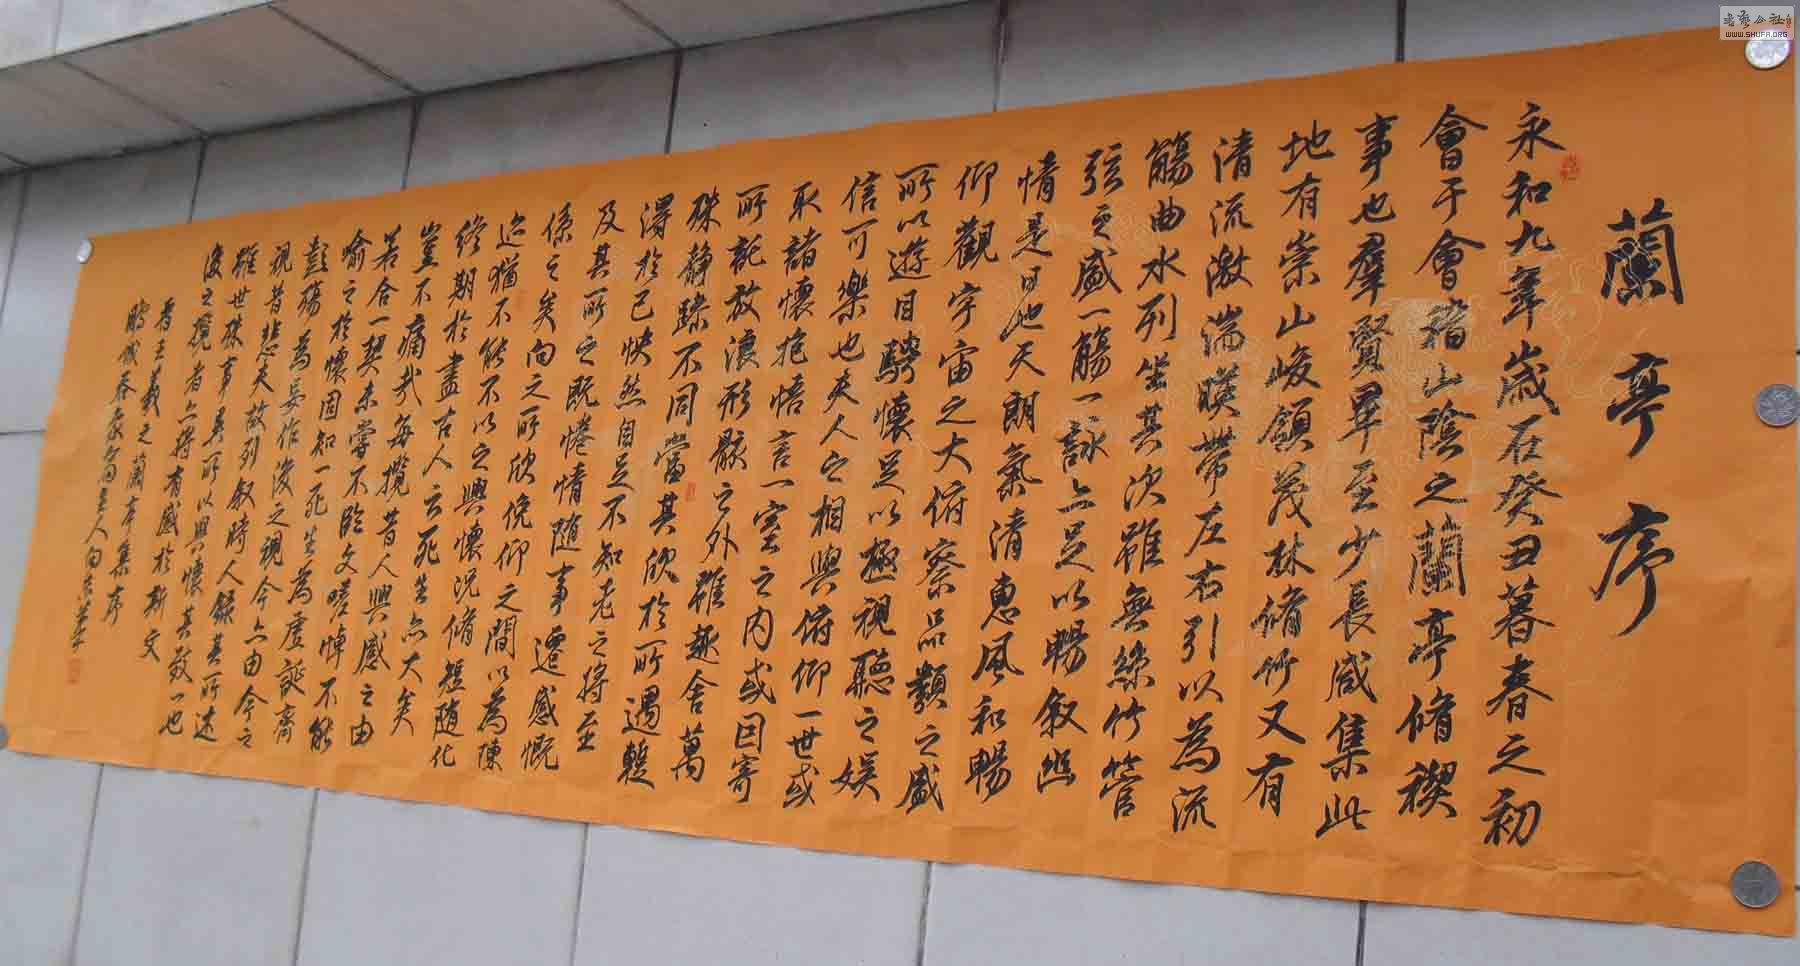 蘭亭序
永和九年歲在癸丑暮春之初
會于會稽山陰之蘭亭脩禊
事也羣賢畢至少長咸集此
地有崇山峻領茂林脩竹又有
清流激湍暎帶左右引以為流
觴曲水列坐其次雖無絲竹管
弦之盛一觴一詠亦足以暢敘幽
情是日也天朗氣清惠風和暢
仰觀宇宙之大俯察品類之盛
所以遊目騁懷足以極視聽之娛
信可樂也夫人之相與俯仰一世或
取諸懷抱悟言一室之內或因寄
所託放浪形骸之外雖趣舍萬
殊靜躁不同當其欣於所遇蹔
得於己快然自足不知老之將至
及其所之既惓情隨事遷感慨
係之矣向之所欣俛仰之間以為陳
迹猶不能不以之興懷況脩短隨化
終期於盡古人云死生亦大矣
豈不痛哉每攬昔人興感之由
若合一契未嘗不臨文嗟悼不能
喻之於懷固知一死生為虛誕齊
彭殤為妄作後之視今亦由今之
視昔悲夫故列敘時人錄其所述
雖世殊事異所以興懷其致一也
後之攬者亦將有感於斯文
右王羲之蘭亭集序
鵬城主人向
书艺公社
WWW.SHUFA.ORG